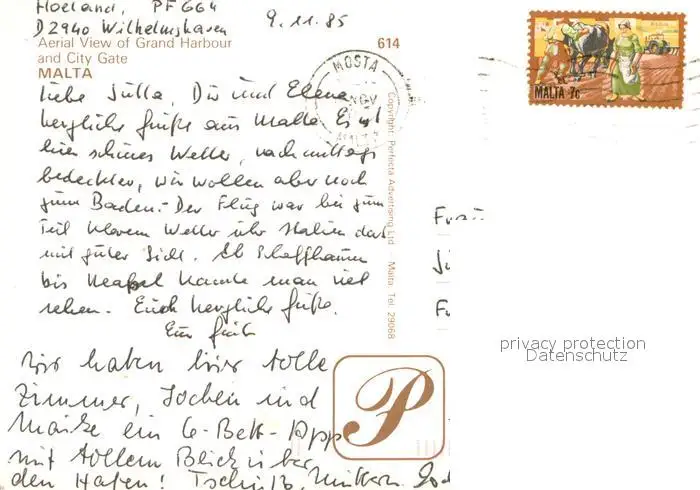 Hoeland, PF 664
D2940 Wilhelmshaven 9.11.85
Aerial View of Grand Harbour
and City Gate
MALTA
614
MOSTA
NOV
MALTA 7c
Liebe Jutta, Dir und Elena
herzliche Grüße aus Malta. Es ist
hier schönes Wetter, nachmittags
bedeckter, wir wollen aber noch
zum Baden. Der Flug war bis zum
Teil klarem Wetter über Italien
mit guter Sicht. Ab Schaffhausen
bis Neapel konnte man viel
sehen. Euch herzliche Grüße.
Euer
Wir haben hier tolle
Zimmer, Jochen und
Maike ein 6-Bett-App
mit tollem Blick über
den Hafen! Tschüß,
Copyright: Perfecta Advertising Ltd Malta. Tel. 29068
P
Frau
privacy protection
Datenschutz